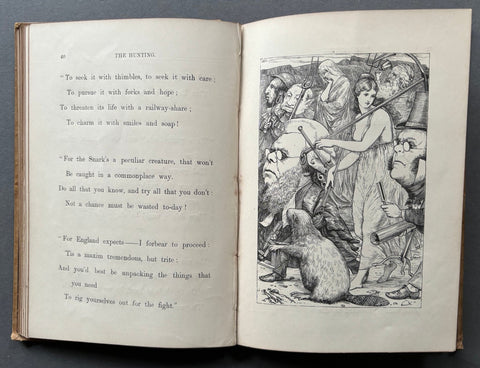 40
THE HUNTING.
"To seek it with thimbles, to seek it with care;
To pursue it with forks and hope;
To threaten its life with a railway-share;
To charm it with smiles and soap!
"For the Snark's a peculiar creature, that won't
Be caught in a commonplace way.
Do all that you know, and try all that you don't:
Not a chance must be wasted to-day!
"For England expects—I forbear to proceed:
'Tis a maxim tremendous, but trite:
And you'd best be unpacking the things that
you need
To rig yourselves out for the fight."